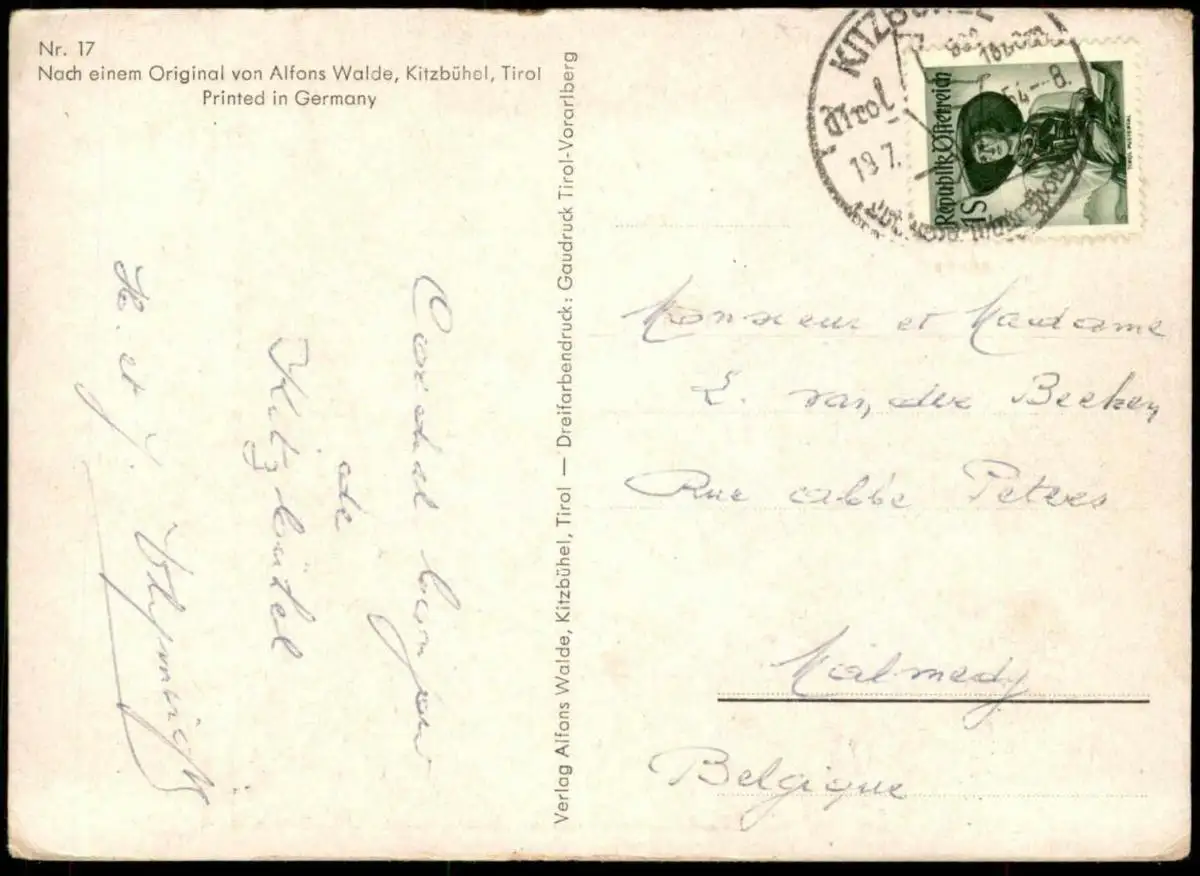 Nr. 17
Nach einem Original von Alfons Walde, Kitzbühel, Tirol
Printed in Germany
Verlag Alfons Walde, Kitzbühel, Tirol — Dreifarbendruck: Gaudruck Tirol-Vorarlberg
KITZBÜHEL
Tirol
18.7. 54-8.
Republik Österreich
1S
TIROL PUSTERTAL
Cordial bonjour
de
Kitzbühel
et J.
Monsieur et Madame
van der Beeken
Rue abbé Peters
Malmedy
Belgique